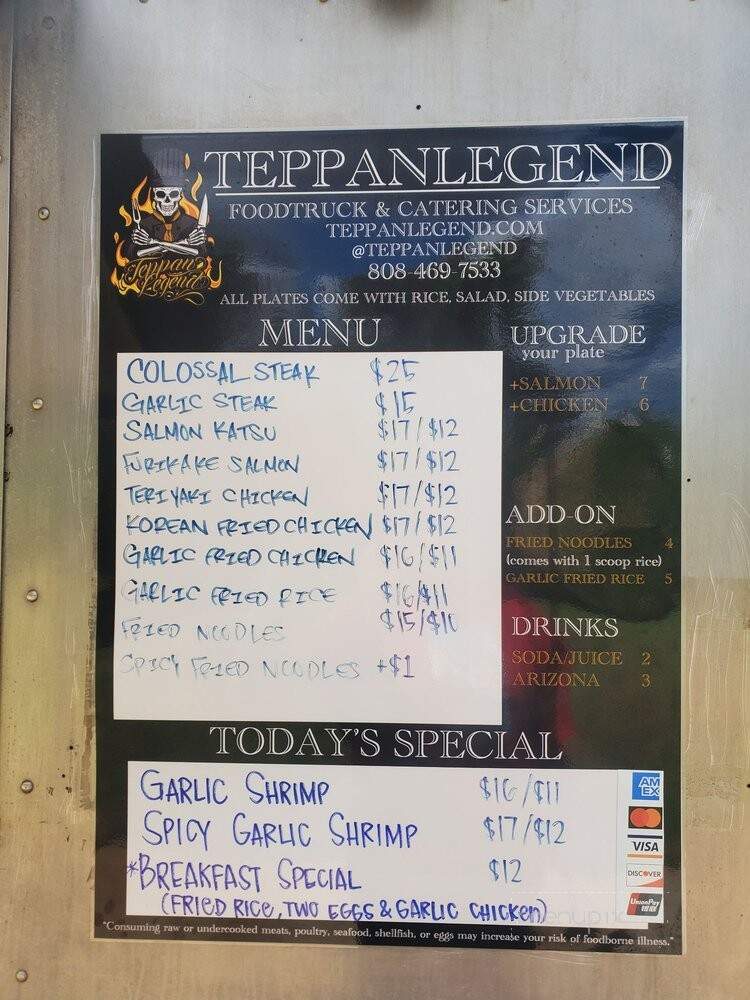 TEPPANLEGEND
FOODTRUCK & CATERING SERVICES
TEPPANLEGEND.COM
@TEPPANLEGEND
808-469-7533
Teppan
Legend
ALL PLATES COME WITH RICE, SALAD, SIDE VEGETABLES
MENU
COLOSSAL STEAK $25
GARLIC STEAK $15
SALMON KATSU $17/$12
FURIKAKE SALMON $17/$12
TERIYAKI CHICKEN $17/$12
KOREAN FRIED CHICKEN $17/$12
GARLIC FRIED CHICKEN $16/$11
GARLIC FRIED RICE $16/$11
FRIED NOODLES $15/$10
SPICY FRIED NOODLES +$1
UPGRADE
your plate
+SALMON 7
+CHICKEN 6
ADD-ON
FRIED NOODLES 4
(comes with 1 scoop rice)
GARLIC FRIED RICE 5
DRINKS
SODA/JUICE 2
ARIZONA 3
TODAY'S SPECIAL
GARLIC SHRIMP $16/$11
SPICY GARLIC SHRIMP $17/$12
*BREAKFAST SPECIAL $12
(FRIED RICE, TWO EGGS & GARLIC CHICKEN)
AM
EX
VISA
DISCOVER
UnionPay
银联
"Consuming raw or undercooked meats, poultry, seafood, shellfish, or eggs may increase your risk of foodborne illness."